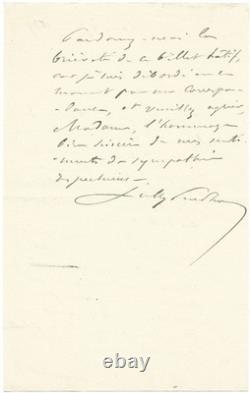 Pardonnez-moi la
brièveté de ce billet hâtif,
car je suis débordé en ce
moment par ma correspon-
dance, et veuillez agréer,
Madame, l'hommage
bien sincère de mes senti-
ments de sympathie
respectueuse.
Sully Prudhomme
ebay